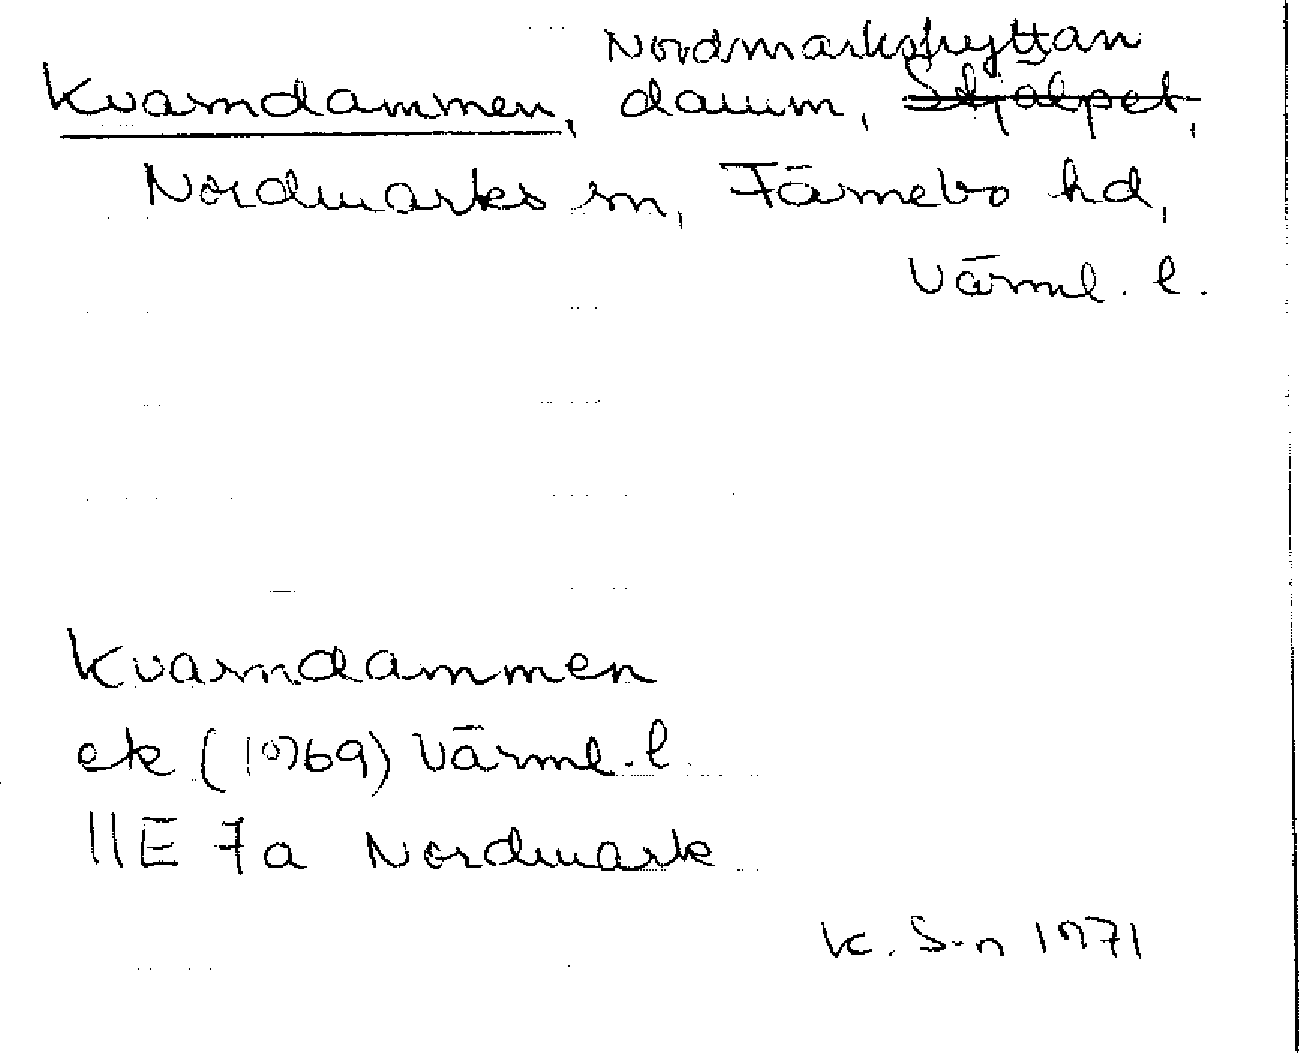 Nordmarkshyttan
Kvarndammen, damm, Stjälpet,
Nordmarks sn, Färnebo hd,
Värml. l.
Kvarndammen
ek (1969) Värml. l.
11E 7a Nordmark
K. S-n 1971